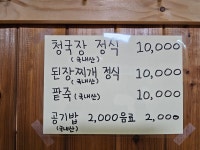 청국장 정식 10,000
(국내산)
된장찌개 정식 10,000
(국내산)
팥죽 (국내산) 10,000
공기밥 2,000 음료 2,000
(국내산)